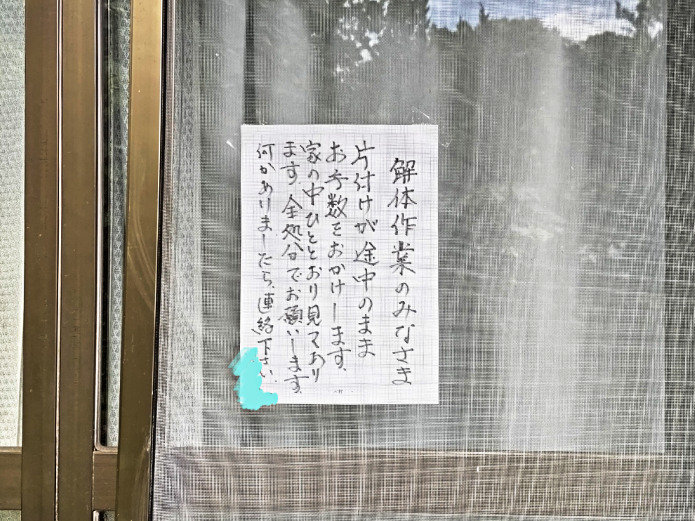 解体作業のみなさま
片付けが途中のまま
お手数をおかけします。
家の中ひととおり見てあり
ます。全処分でお願いします。
何かありましたら、連絡下さい。